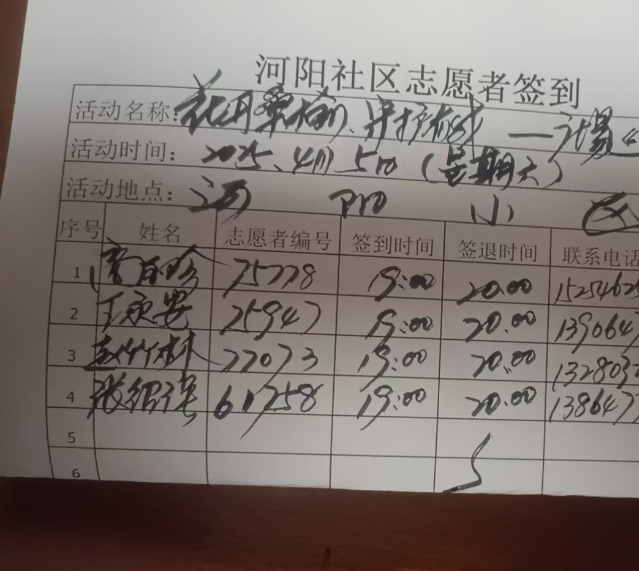 河阳社区志愿者签到
活动名称:
活动时间: 2025、4月5日(星期天)
活动地点: 河 阳 小 区
序号 姓名 志愿者编号 签到时间 签退时间 联系电话
1 75778 19:00 20:00 1525462
2 王永安 25947 19:00 20:00 139064
3 赵竹林 77073 19:00 20:00 132803
4 61758 19:00 20:00 138647
5
6